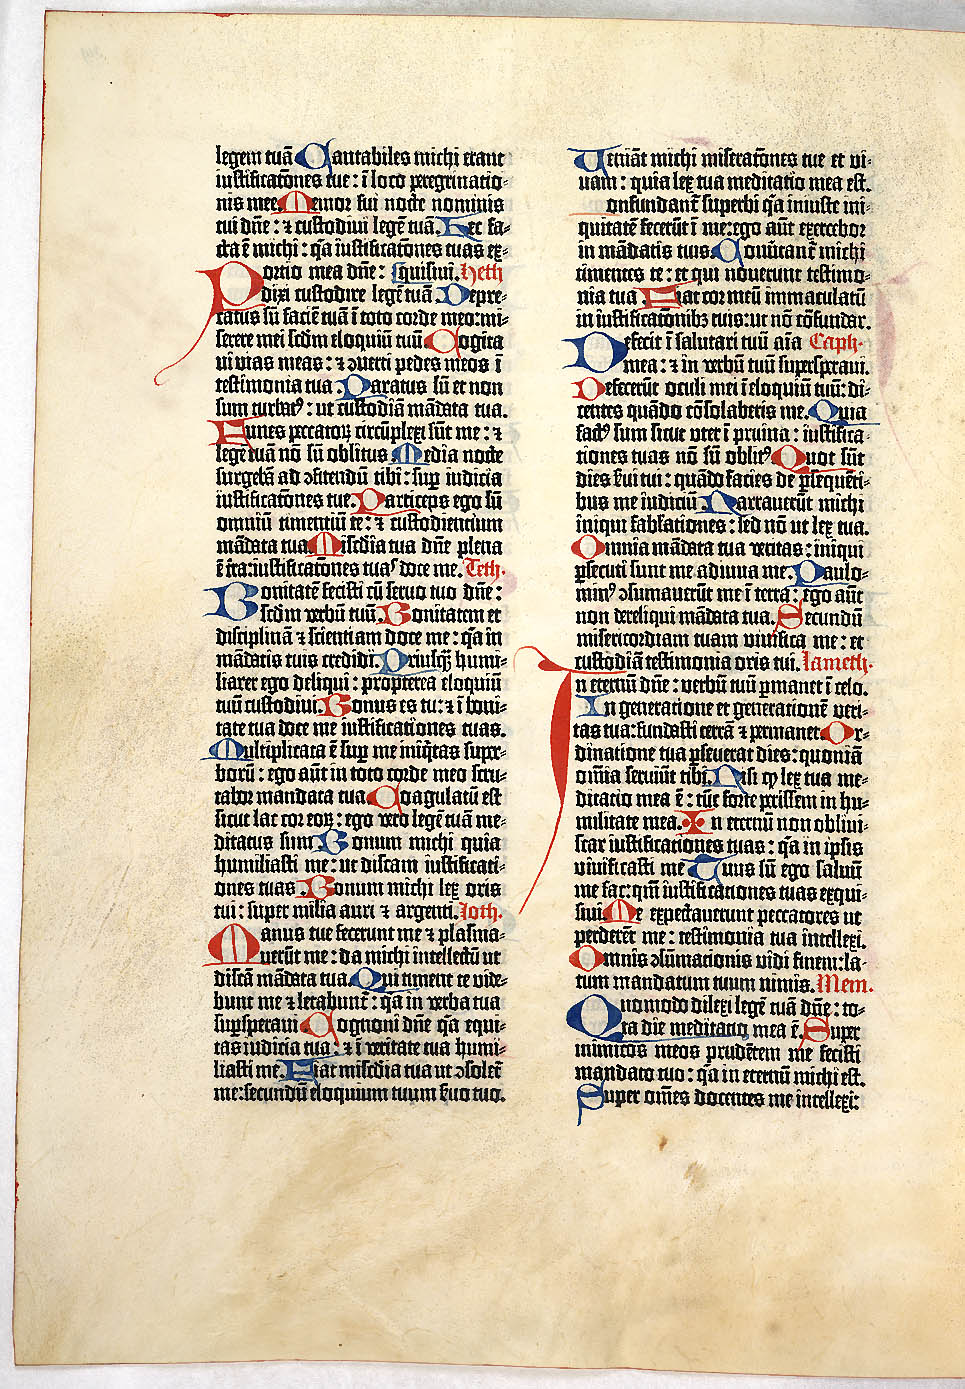 legem tuā Cantabiles michi erant
iustificatōnes tue: ī loco peregrinatio-
nis mee. Memor fui nocte nominis
tui dn̄e: ⁊ custodiui legē tuā. Hec fa-
cta ē michi: q̄a iustificatōnes tuas ex-
Portio mea dn̄e: squisiui. Heth
dixi custodire legē tuā Depre-
catus sū faciē tuā ī toto corde meo: mi-
serere mei scdm eloquiū tuū Cogita
ui vias meas: ⁊ ꝯuerti pedes meos ī
testimonia tua. Paratus sū et non
sum turbatꝰ: ut custodiā mādata tua.
Funes peccatoꝝ circūplexi sūt me: ⁊
legē tuā nō sū oblitus Media nocte
surgebā ad ꝯfitendū tibi: sup iudicia
iustificatōnes tue. Particeps ego sū
omniū timentiū te: ⁊ custodientium
mādata tua. Miscdia tua dn̄e plena
ē t̄ra: iustificatōnes tuas doce me. Teth.
Bonitatē fecisti cū seruo tuo dn̄e:
scdm verbū tuū. Bonitatem et
disciplinā ⁊ scientiam doce me: q̄a in
mādatis tuis credidi. Priusq̄ humi-
liarer ego deliqui: propterea eloquiū
tuū custodiui. Bonus es tu: ⁊ ī boni-
tate tua doce me iustificationes tuas.
Multiplicata ē sup me iniq̄tas supr-
borū: ego aūt in toto corde meo scru-
tabor mandata tua Coagulatū est
sicut lac cor eoꝝ: ego vero legē tuā me-
ditatus sum Bonum michi quia
humiliasti me: ut discam iustificati-
ones tuas. Bonum michi lex oris
tui: super milia auri ⁊ argenti. Joth.
Manus tue fecerunt me ⁊ plasma-
uerūt me: da michi intellectū ut
discā mādata tua. Qui timent te vide-
bunt me ⁊ letabunt̄: q̄a in verba tua
supsperaui Cognoui dn̄e q̄a equi-
tas iudicia tua: ⁊ ī veritate tua humi-
liasti me. Fiat miscdia tua ut ꝯsolet̄
me: secundū eloquium tuum s̄uo tuo.
Veniāt michi miseratōnes tue et vi-
uam: quia lex tua meditatio mea est.
onfundant̄ superbi q̄a iniuste ini-
quitatē fecerūt ī me: ego aūt exercebor
in mādatis tuis. Conūtant̄ michi
timentes te: et qui nouerunt testimo-
nia tua Fiat cor meū immaculatū
in iustificatōnibꝫ tuis: ut nō cōfundar.
Defecit ī salutari tuū aīa Caph.
mea: ⁊ in verbū tuū supersperaui.
Defecerūt oculi mei ī eloquiū tuū: di-
centes quādo cōsolaberis me. Quia
factꝰ sum sicut uter ī pruina: iustifica-
tiones tuas nō sū oblitꝰ Quot sūt
dies s̄ui tui: quādo facies de ꝑsequēti-
bus me iudiciū Narrauerūt michi
iniqui fabulationes: sed nō ut lex tua.
Omnia mādata tua veritas: iniqui
ꝑsecuti sunt me adiuua me. Paulo-
minꝰ ꝯsumauerūt me ī terra: ego aūt
non dereliqui mādata tua. Secundū
misericordiam tuam viuifica me: et
custodiā testimonia oris tui. Lameth.
In eternū dn̄e: verbū tuū ꝑmanet ī celo.
In generatione et generationē veri-
tas tua: fundasti terrā ⁊ permanet. Or-
dinatione tua ꝑseuerat dies: quoniā
om̄ia seruiūt tibi. Nisi ꝙ lex tua me-
ditatio mea ē: tūc forte perissem in hu-
militate mea. In eternū non obliui-
scar iustificationes tuas: q̄a in ipsis
viuificasti me Tuus sū ego saluū
me fac: qm̄ iustificationes tuas exqui-
siui. Me expectauerunt peccatores ut
perderēt me: testimonia tua intellexi.
Omnis ꝯsūmationis vidi finem: la-
tum mandatum tuum nimis. Mem.
Quomodo dilexi legē tuā dn̄e: to-
ta die meditatio mea ē. Super
inimicos meos prudētem me fecisti
mandato tuo: q̄a in eternū michi est.
Super om̄es docentes me intellexi: